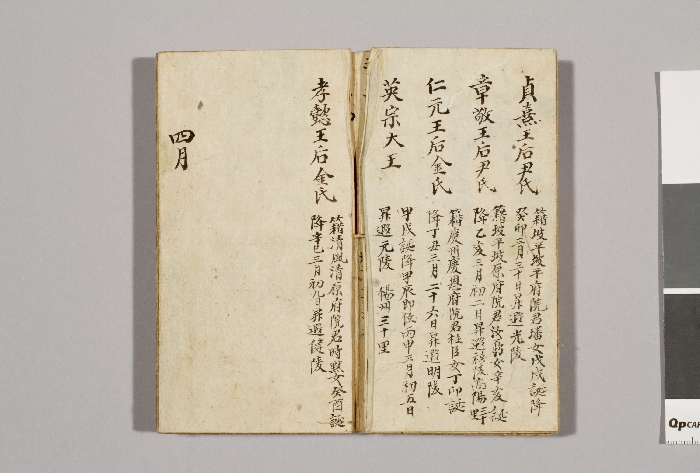 貞熹王后尹氏
籍坡平坡平府院君璠女戊戌誕降
癸卯三月三十日昇遐 光陵
章敬王后尹氏
籍坡平坡原府院君汝弼女辛亥誕
降乙亥三月初二日昇遐禧陵高陽
仁元王后金氏
籍慶州慶恩府院君柱臣女丁卯誕
降丁丑三月二十六日昇遐明陵
英宗大王
甲戌誕降甲辰卽位丙申三月初五日
昇遐元陵 楊州三十里
孝懿王后金氏
籍清風清原府院君時默女癸酉誕
降辛巳三月初九日昇遐健陵
四月
QPCAR